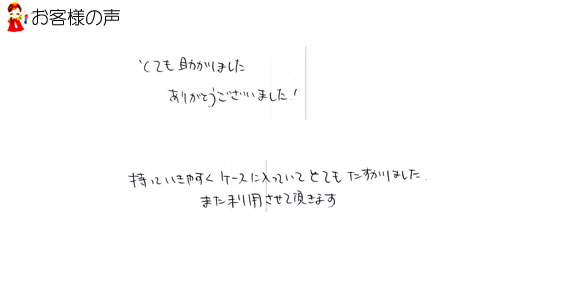 お客様の声
とても助かりました
ありがとうございました!
持っていきやすくケースに入っていてとてもたすかりました.
また利用させて頂きます